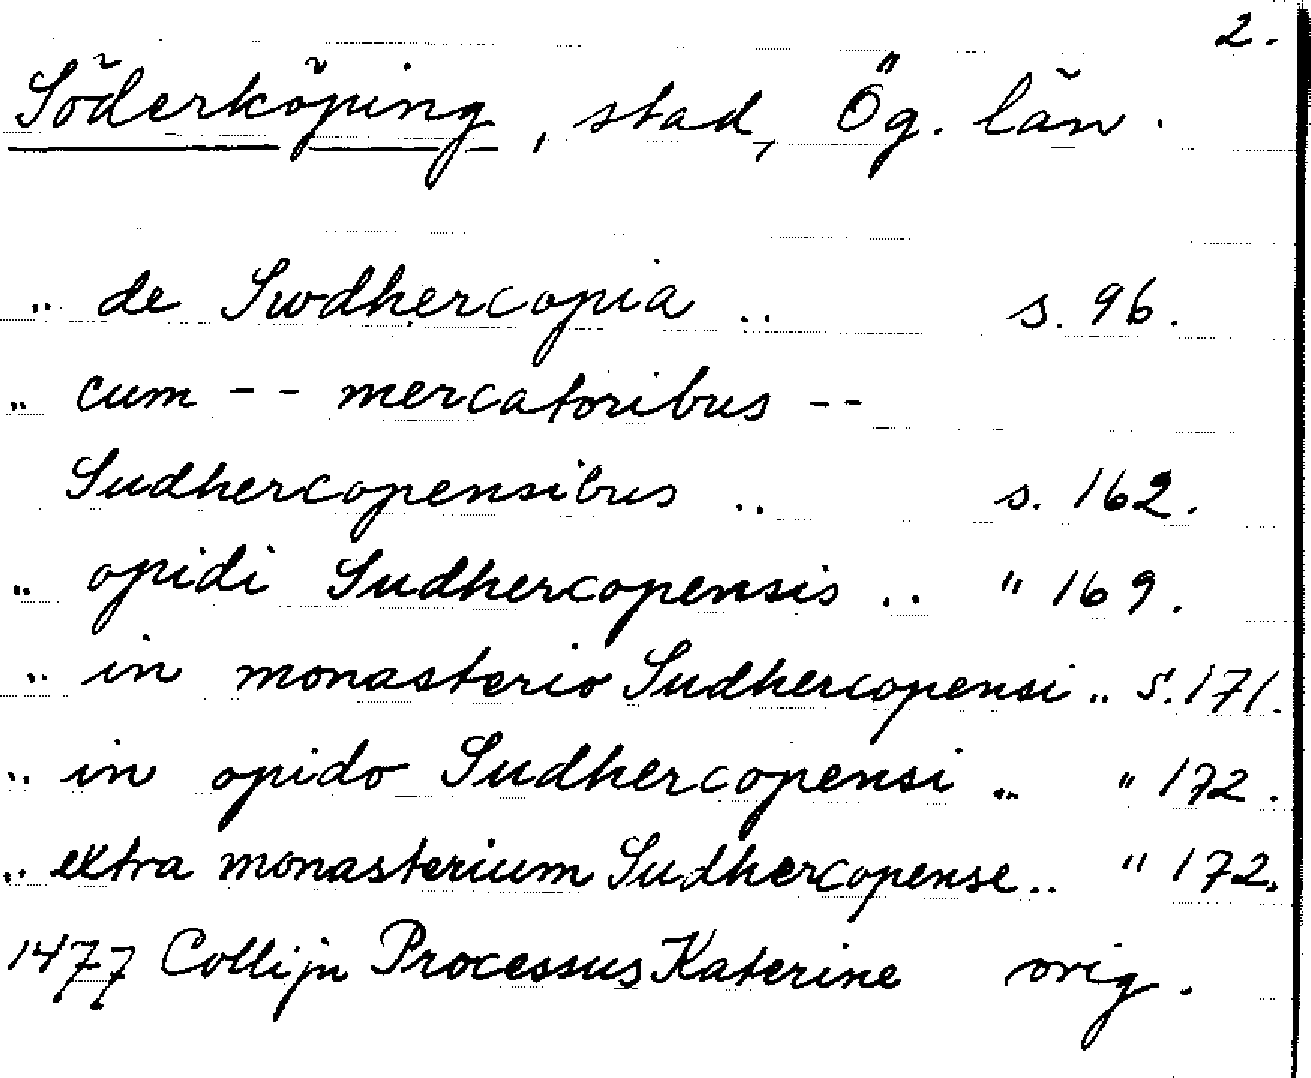 2.
Söderköping, stad, Ög. län.
.. de Swdhercopia .. s. 96.
.. cum -- mercatoribus --
Sudhercopensibus .. s. 162.
.. opidi Sudhercopensis .. " 169.
.. in monasterio Sudhercopensi .. s. 171.
.. in opido Sudhercopensi .. " 172.
.. extra monasterium Sudhercopense .. " 172.
1477 Collijn Processus Katerine orig.